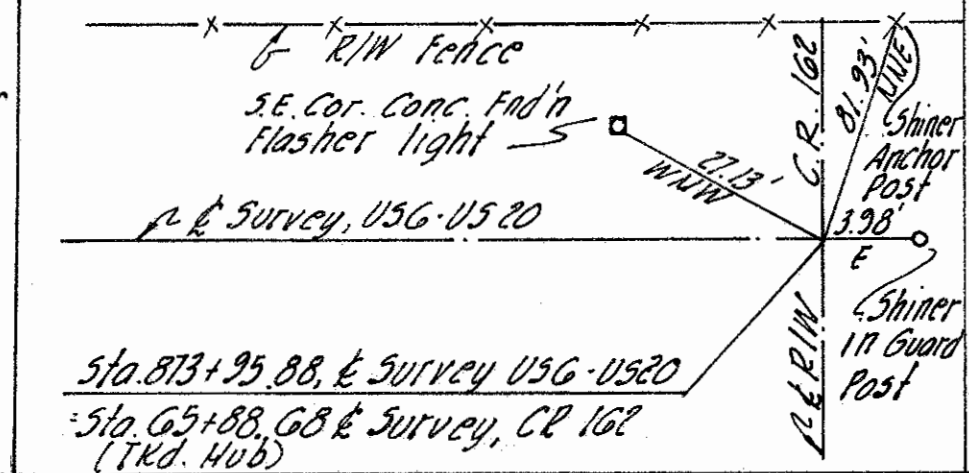 R/W Fence
S.E. Cor. Conc. Fnd'n
Flasher light
27.13'
WNW
C.R. 162
81.93'
NNE
Shiner
Anchor
Post
℄ Survey, US6-US20
3.98'
E
Shiner
in Guard
Post
℄ R/W
Sta. 873+95.88, ℄ Survey US6-US20
=Sta. 65+88.68 ℄ Survey, CR 162
(TKd. Hub)